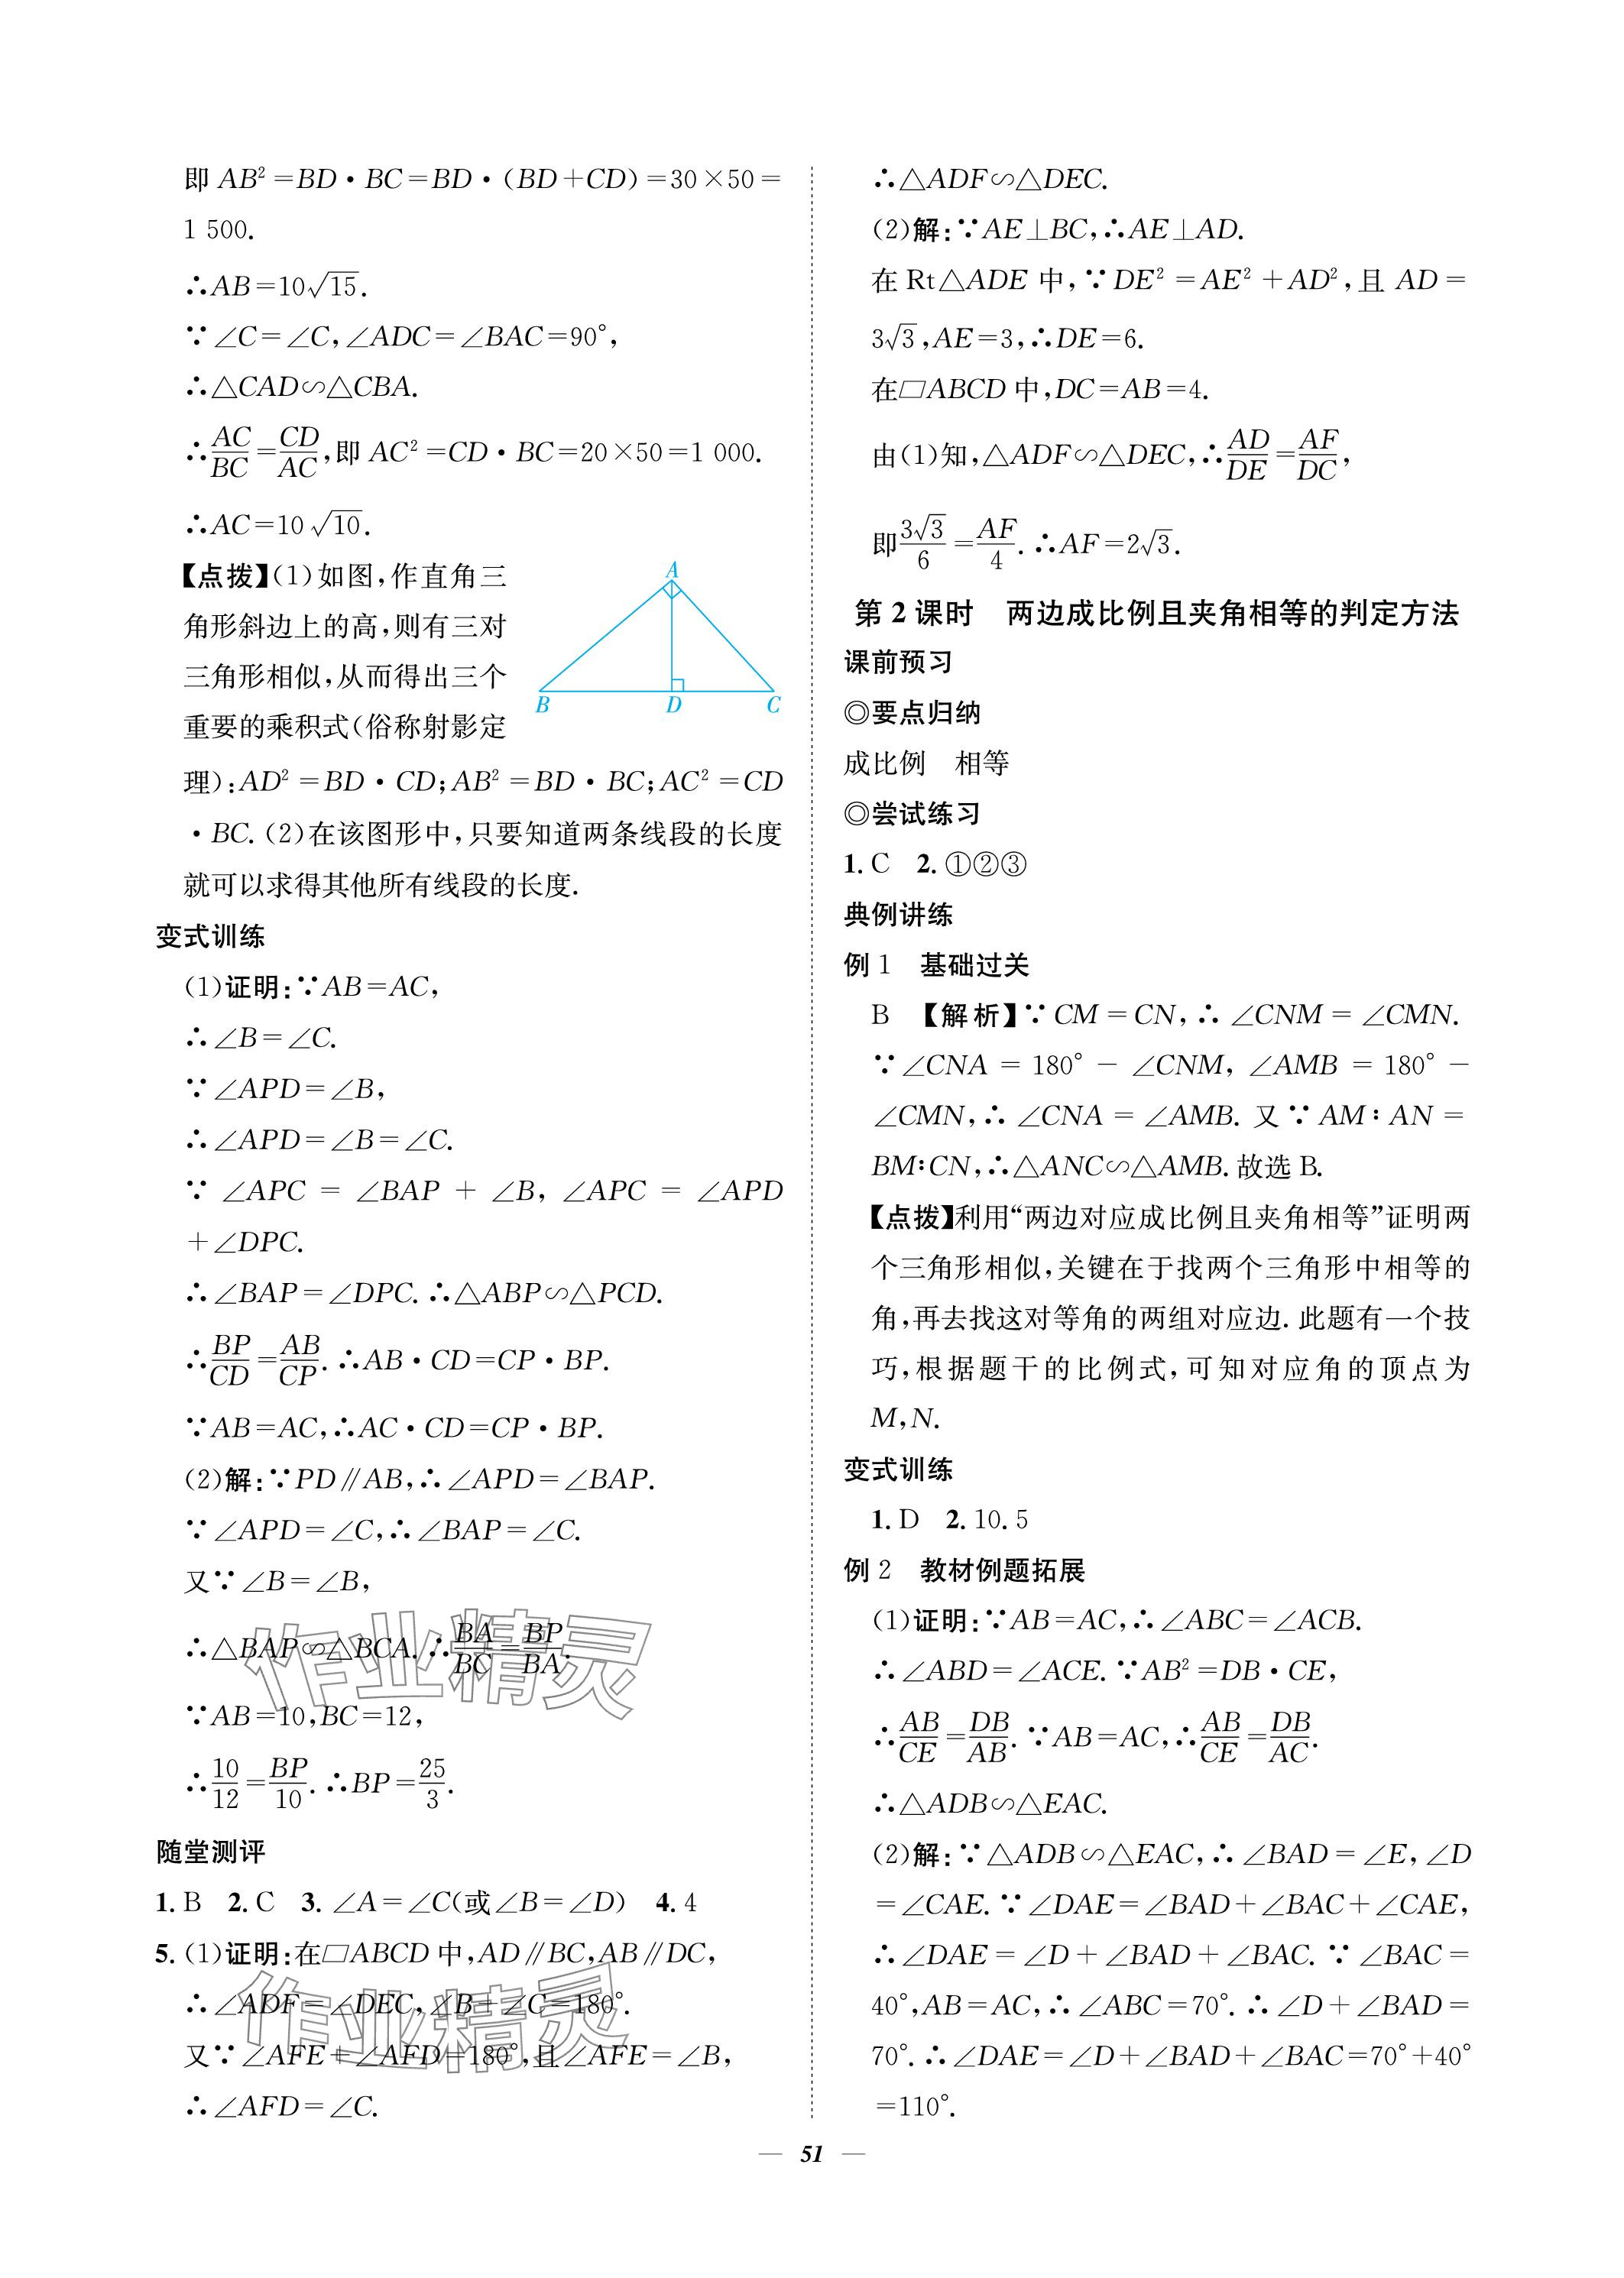 即 AB²=BD·BC=BD·(BD+CD)=30×50=
1 500.
∴AB=10√15.
∵∠C=∠C,∠ADC=∠BAC=90°,
∴△CAD∽△CBA.
∴AC/BC=CD/AC,即 AC²=CD·BC=20×50=1 000.
∴AC=10√10.
【点拨】(1)如图,作直角三
角形斜边上的高,则有三对
三角形相似,从而得出三个
重要的乘积式(俗称射影定
A
B
D
C
理):AD²=BD·CD;AB²=BD·BC;AC²=CD
·BC.(2)在该图形中,只要知道两条线段的长度
就可以求得其他所有线段的长度.
变式训练
(1)证明:∵AB=AC,
∴∠B=∠C.
∵∠APD=∠B,
∴∠APD=∠B=∠C.
∵∠APC=∠BAP+∠B,∠APC=∠APD
+∠DPC.
∴∠BAP=∠DPC.∴△ABP∽△PCD.
∴BP/CD=AB/CP.∴AB·CD=CP·BP.
∵AB=AC,∴AC·CD=CP·BP.
(2)解:∵PD∥AB,∴∠APD=∠BAP.
∵∠APD=∠C,∴∠BAP=∠C.
又∵∠B=∠B,
∴△BAP∽△BCA.∴BA/BC=BP/BA.
∵AB=10,BC=12,
∴10/12=BP/10.∴BP=25/3.
随堂测评
1. B 2. C 3. ∠A=∠C(或∠B=∠D) 4. 4
5. (1)证明:在▱ABCD中,AD∥BC,AB∥DC,
∴∠ADF=∠DEC,∠B+∠C=180°.
又∵∠AFE+∠AFD=180°,且∠AFE=∠B,
∴∠AFD=∠C.
作业精灵
作业精灵
∴△ADF∽△DEC.
(2)解:∵AE⊥BC,∴AE⊥AD.
在 Rt△ADE 中,∵DE²=AE²+AD²,且 AD=
3√3,AE=3,∴DE=6.
在▱ABCD 中,DC=AB=4.
由(1)知,△ADF∽△DEC,∴AD/DE=AF/DC,
即3√3/6=AF/4.∴AF=2√3.
第 2 课时 两边成比例且夹角相等的判定方法
课前预习
◎要点归纳
成比例 相等
◎尝试练习
1. C 2. ①②③
典例讲练
例 1 基础过关
B 【解析】∵CM=CN,∴∠CNM=∠CMN.
∵∠CNA=180°-∠CNM,∠AMB=180°-
∠CMN,∴∠CNA=∠AMB.又∵AM∶AN=
BM∶CN,∴△ANC∽△AMB.故选 B.
【点拨】利用“两边对应成比例且夹角相等”证明两
个三角形相似,关键在于找两个三角形中相等的
角,再去找这对等角的两组对应边.此题有一个技
巧,根据题干的比例式,可知对应角的顶点为
M,N.
变式训练
1. D 2. 10.5
例 2 教材例题拓展
(1)证明:∵AB=AC,∴∠ABC=∠ACB.
∴∠ABD=∠ACE.∵AB²=DB·CE,
∴AB/CE=DB/AB.∵AB=AC,∴AB/CE=DB/AC.
∴△ADB∽△EAC.
(2)解:∵△ADB∽△EAC,∴∠BAD=∠E,∠D
=∠CAE.∵∠DAE=∠BAD+∠BAC+∠CAE,
∴∠DAE=∠D+∠BAD+∠BAC.∵∠BAC=
40°,AB=AC,∴∠ABC=70°.∴∠D+∠BAD=
70°.∴∠DAE=∠D+∠BAD+∠BAC=70°+40°
=110°.
— 51 —